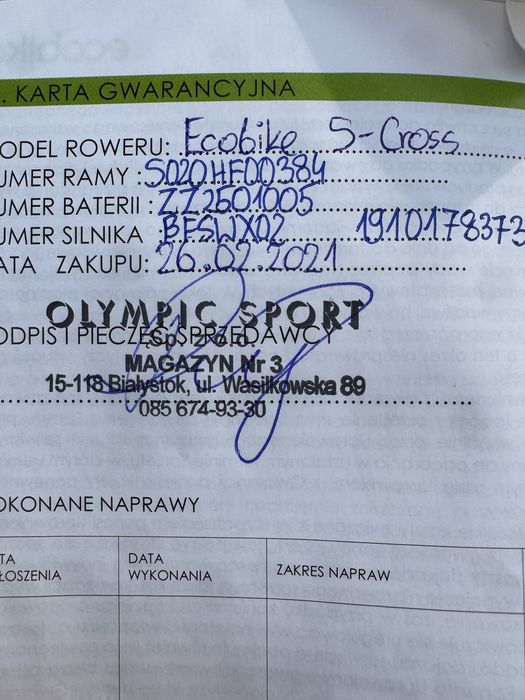 . KARTA GWARANCYJNA
ODEL ROWERU: Ecobike S-Cross
UMER RAMY : S020HF00384
UMER BATERII : ZZ2501005
UMER SILNIKA BFSWX02 1910178373
ATA ZAKUPU: 26.02.2021
OLYMPIC SPORT
ODPIS I PIECZĘĆ SPRZEDAWCY
Sp. z o.o.
MAGAZYN Nr 3
15-118 Białystok, ul. Wasilkowska 89
085 674-93-30
OKONANE NAPRAWY
TA
ŁOSZENIA
DATA
WYKONANIA
ZAKRES NAPRAW